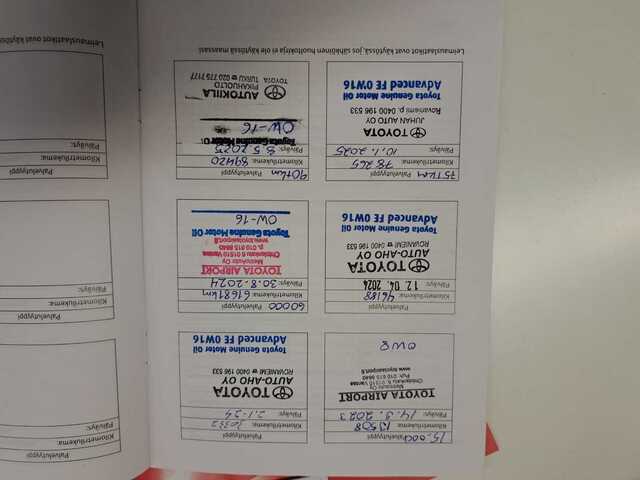 Palvelutyyppi 15.000
Kilometrilukema: 13508
Päiväys: 14.3.2023
TOYOTA AIRPORT
Ohtolankatu 6, 01510 Vantaa
www.toyotaairport.fi
OW8
Palvelutyyppi
Kilometrilukema: 30332
Päiväys: 2.1-24
TOYOTA
AUTO-AHO OY
ROVANIEMI ☎ 0400 196 533
Toyota Genuine Motor Oil
Advanced FE 0W16
Palvelutyyppi
Kilometrilukema: 46188
Päiväys: 12. 04. 2024
TOYOTA
AUTO-AHO OY
ROVANIEMI ☎ 0400 196 533
Toyota Genuine Motor Oil
Advanced FE 0W16
Palvelutyyppi 60000
Kilometrilukema: 61681km
Päiväys: 30.8.2024
TOYOTA AIRPORT
Ohtolankatu 6 01510 Vantaa
p. 010 615 8640
www.toyotaairport.fi
Toyota Genuine Motor Oil
OW-16
Palvelutyyppi 75TKM
Kilometrilukema: 78265
Päiväys: 10.1.2025
TOYOTA
JUHAN AUTO OY
Rovaniemi p. 0400 196 533
Toyota Genuine Motor Oil
Advanced FE 0W16
Palvelutyyppi 90tkm
Kilometrilukema: 89420
Päiväys: 8.5.2025
Toyota Genuine Motor Oil
OW-16
AUTOKIILA
PIKAHUOLTO
TURKU ☎ 020 775 7177
TOYOTA
Leimauslaatikot ovat käytössä, jos sähköinen huoltokirja ei ole käytössä maassasi
Palvelutyyppi
Kilometrilukema:
Päiväys:
Palvelutyyppi
Kilometrilukema:
Päiväys:
Palvelutyyppi
Kilometrilukema:
Päiväys:
Leimauslaatikot ovat